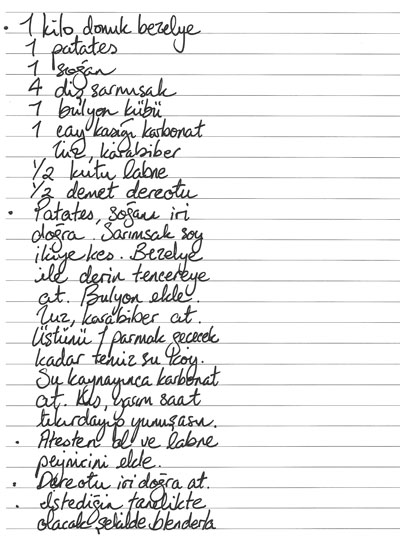 • 1 kilo donuk bezelye
1 patates
1 soğan
4 diş sarımsak
1 bulyon kübü
1 çay kaşığı karbonat
Tuz, karabiber
1/2 kutu labne
1/2 demet dereotu
• Patates, soğanı iri
doğra. Sarımsak soy
ikiye kes. Bezelye
ile derin tencereye
at. Bulyon ekle.
Tuz, karabiber at.
Üstünü 1 parmak geçecek
kadar temiz su koy.
Su kaynayınca karbonat
at. Kıs, yarım saat
tıkırdayıp yumuşasın.
• Ateşten al ve labne
peynirini ekle.
• Dereotu iri doğra at.
• İstediğin tanelikte
olacak şekilde blenderla